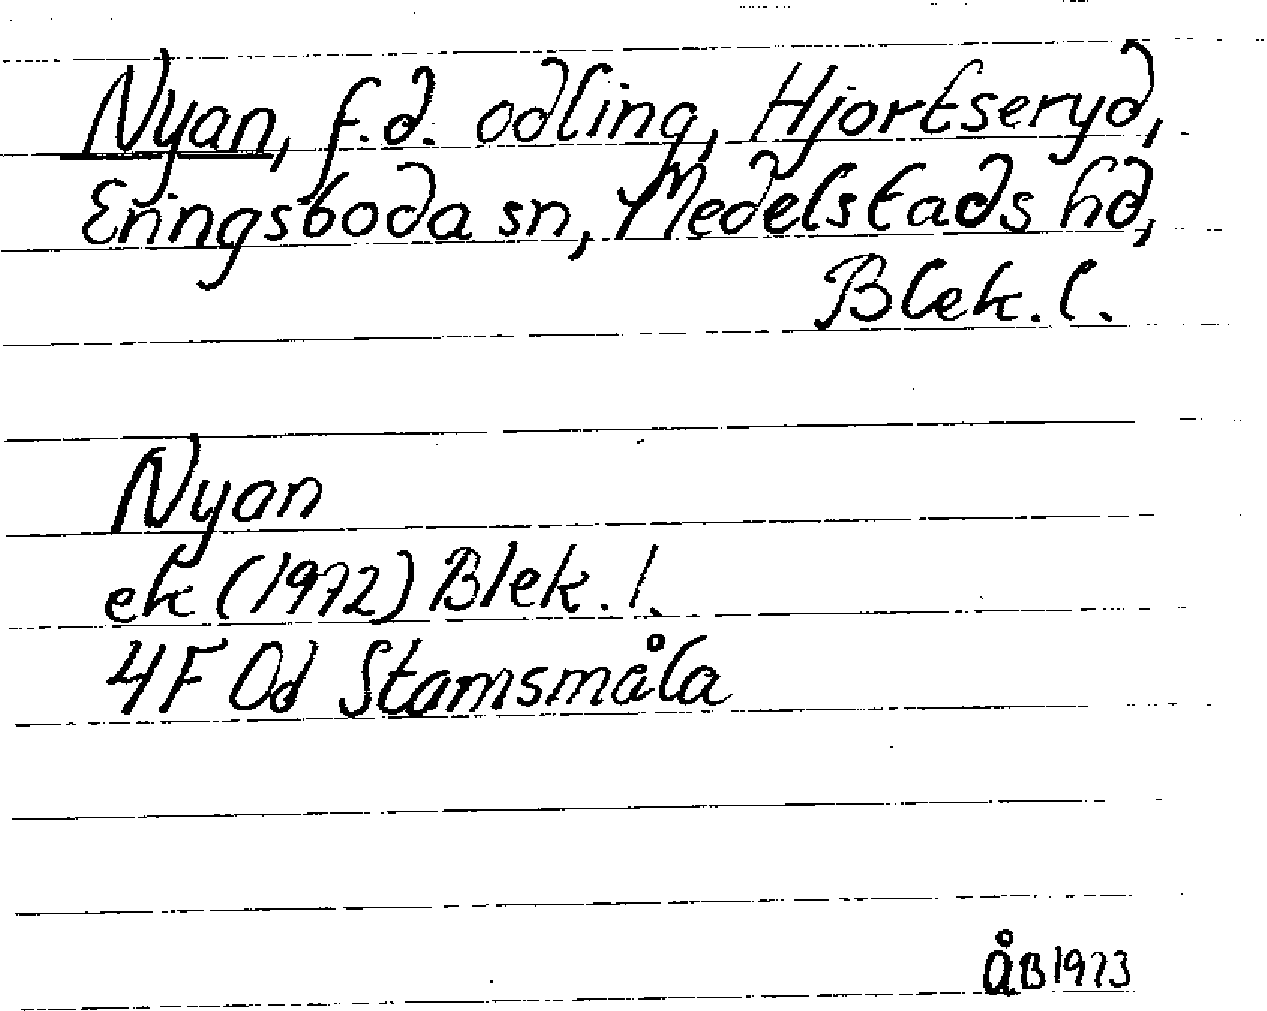 Nyan, f.d. odling, Hjortseryd,
Eringsboda sn, Medelstads hd,
Blek.l.
Nyan
ek (1972) Blek.l.
4F Od Stamsmåla
ÅB 1973